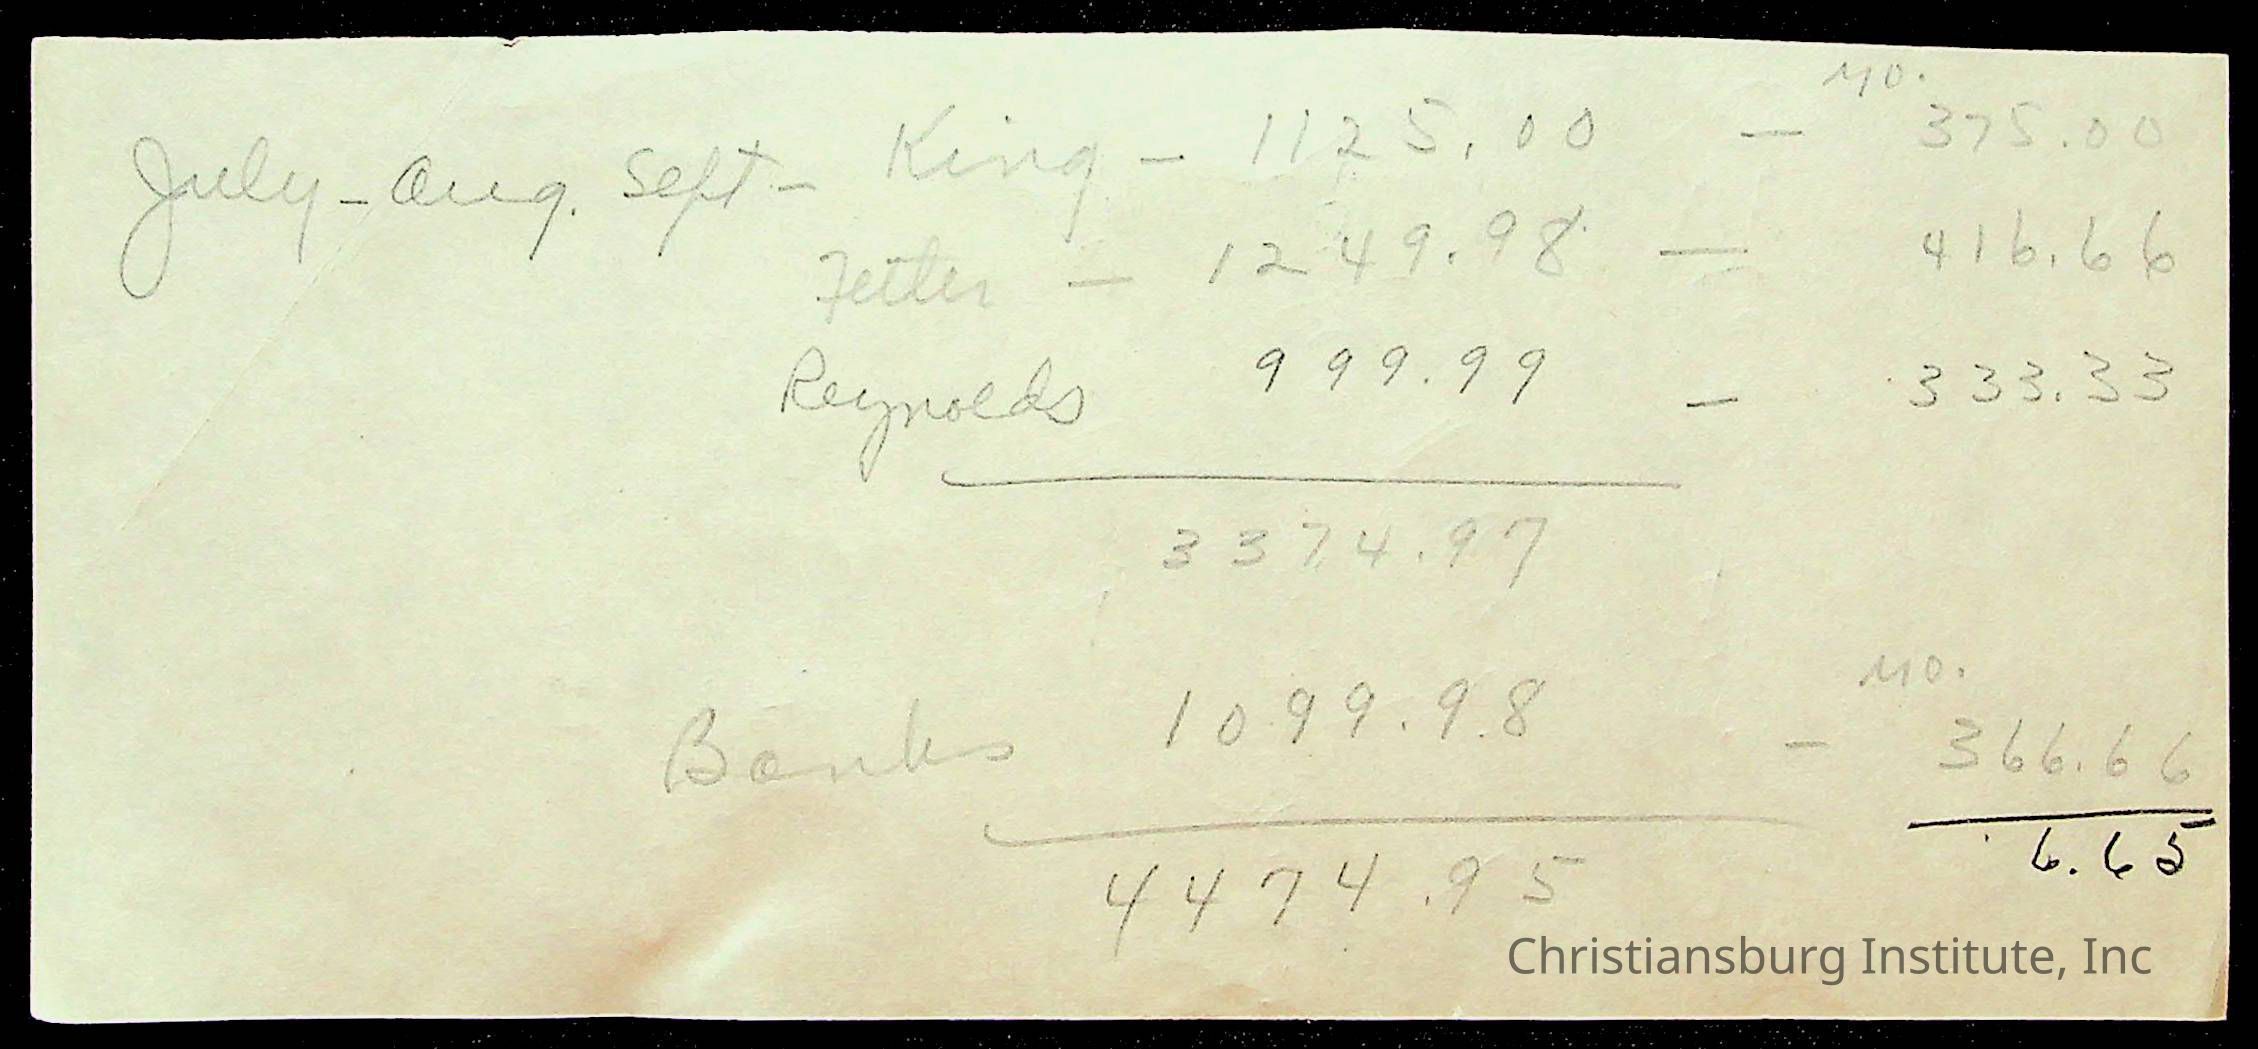 mo.
July - Aug. Sept - King - 1125.00 - 375.00
Fetter - 1249.98 - 416.66
Reynolds 999.99 - 333.33
3374.97
mo.
Banks 1099.98 - 366.66
6.65
4474.95
Christiansburg Institute, Inc